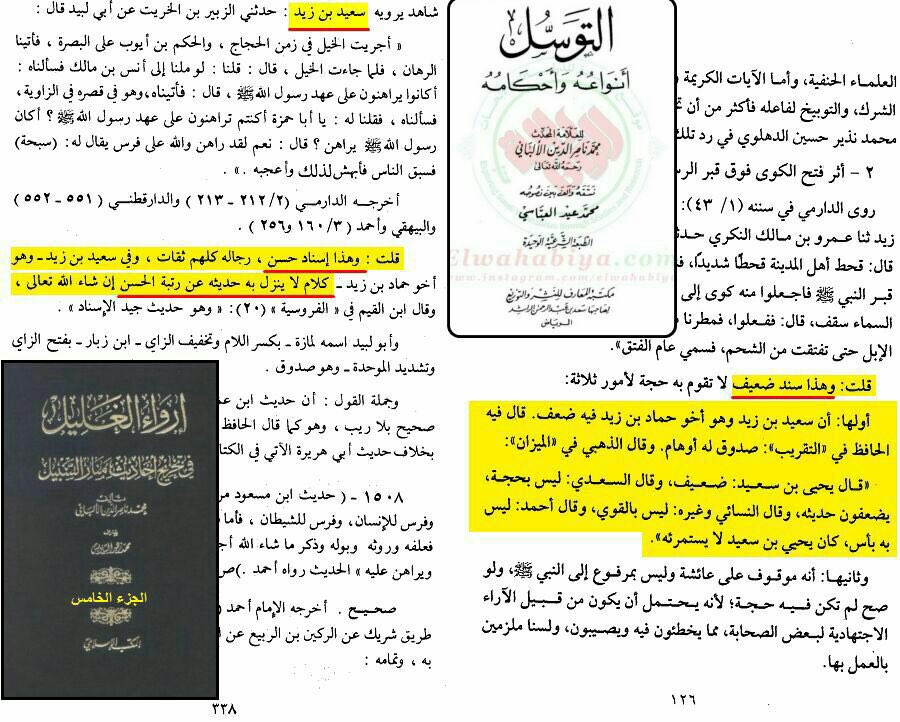 شاهد يرويه سعيد بن زيد : حدثني الزبير بن الخريت عن أبي لبيد قال :
« أجريت الخيل في زمن الحجاج ، والحكم بن أيوب على البصرة ، فأتينا
الرهان ، فلما جاءت الخيل ، قال : قلنا : لو ملنا إلى أنس بن مالك فسألناه :
أكانوا يراهنون على عهد رسول الله ﷺ ، قال : فأتيناه،وهو في قصره في الزاوية،
فسألناه ، فقلنا له : يا أبا حمزة أكنتم تراهنون على عهد رسول الله ﷺ ؟ أكان
رسول الله ﷺ يراهن ؟ قال : نعم لقد راهن والله على فرس يقال له: (سبحة)
فسبق الناس فأبهش لذلك وأعجبه . » .
أخرجه الدارمي (٢/٢١٢ ـ ٢١٣) والدارقطني (٥٥١ ـ ٥٥٢)
والبيهقي وأحمد (٣/ ١٦٠ و٢٥٦) .
قلت : وهذا إسناد حسن ، رجاله كلهم ثقات ، وفي سعيد بن زيد ـ وهو
أخو حماد بن زيد ـ كلام لا ينزل به حديثه عن رتبة الحسن إن شاء الله تعالى ،
وقال ابن القيم في « الفروسية » (٢٠): « وهو حديث جيد الإسناد » .
وأبو لبيد اسمه لمازة ـ بكسر اللام وتخفيف الزاي ـ ابن زبار ـ بفتح الزاي
وتشديد الموحدة ـ وهو صدوق .
وجملة القول : أن حديث ابن عم
صحيح بلا ريب ، وهو كما قال الحافظ
بخلاف حديث أبي هريرة الآتي في الكتا
١٥٠٨ ـ ( حديث ابن مسعود مر
وفرس للإنسان، وفرس للشيطان ، فأما
فعلفه وروثه وبوله وذكر ما شاء الله أج
ويراهن عليه » الحديث رواه أحمد .)ص
صحيح . أخرجه الإمام أحمد (
طريق شريك عن الركين بن الربيع عن ا
به ، وتمامه :
٣٣٨
إرواء الغليل
في تخريج أحاديث منار السبيل
تأليف
محمد ناصر الدين الألباني
محمد زهير الشاويش
الجزء الخامس
المكتب الإسلامي
التوسل
أنواعه وأحكامه
للعلامة المحدث
محمد ناصر الدين الألباني
رحمه الله تعالى
نسقه وألف بين نصوصه
محمد عيد العباسي
الطبعة الشرعية الوحيدة
Elwahabiya.com
www.instagram.com/elwahabiya
مكتبة المعارف للنشر والتوزيع
لصاحبها سعد بن عبد الرحمن الراشد
الرياض
العلماء الحنفية، وأما الآيات الكريمة
الشرك، والتوبيخ لفاعله فأكثر من أن
محمد نذير حسين الدهلوي في رد تلك
٢ - أثر فتح الكوى فوق قبر الرس
روى الدارمي في سننه (١/ ٤٣):
زيد ثنا عمرو بن مالك النكري حدث
قال: قحط أهل المدينة قحطًا شديدًا، ف
قبر النبي ﷺ فاجعلوا منه كوى إلى
السماء سقف، قال: ففعلوا، فمطرنا م
الإبل حتى تفتقت من الشحم، فسمي عام الفتق».
قلت: وهذا سند ضعيف لا تقوم به حجة لأمور ثلاثة:
أولها: أن سعيد بن زيد وهو أخو حماد بن زيد فيه ضعف. قال فيه
الحافظ في «التقريب»: صدوق له أوهام. وقال الذهبي في «الميزان»:
«قال يحيى بن سعيد: ضعيف، وقال السعدي: ليس بحجة،
يضعفون حديثه، وقال النسائي وغيره: ليس بالقوي، وقال أحمد: ليس
به بأس، كان يحيي بن سعيد لا يستمرئه».
وثانيها: أنه موقوف على عائشة وليس بمرفوع إلى النبي ﷺ، ولو
صح لم تكن فيه حجة؛ لأنه يحتمل أن يكون من قبيل الآراء
الاجتهادية لبعض الصحابة، مما يخطئون فيه ويصيبون، ولسنا ملزمين
بالعمل بها.
١٢٦